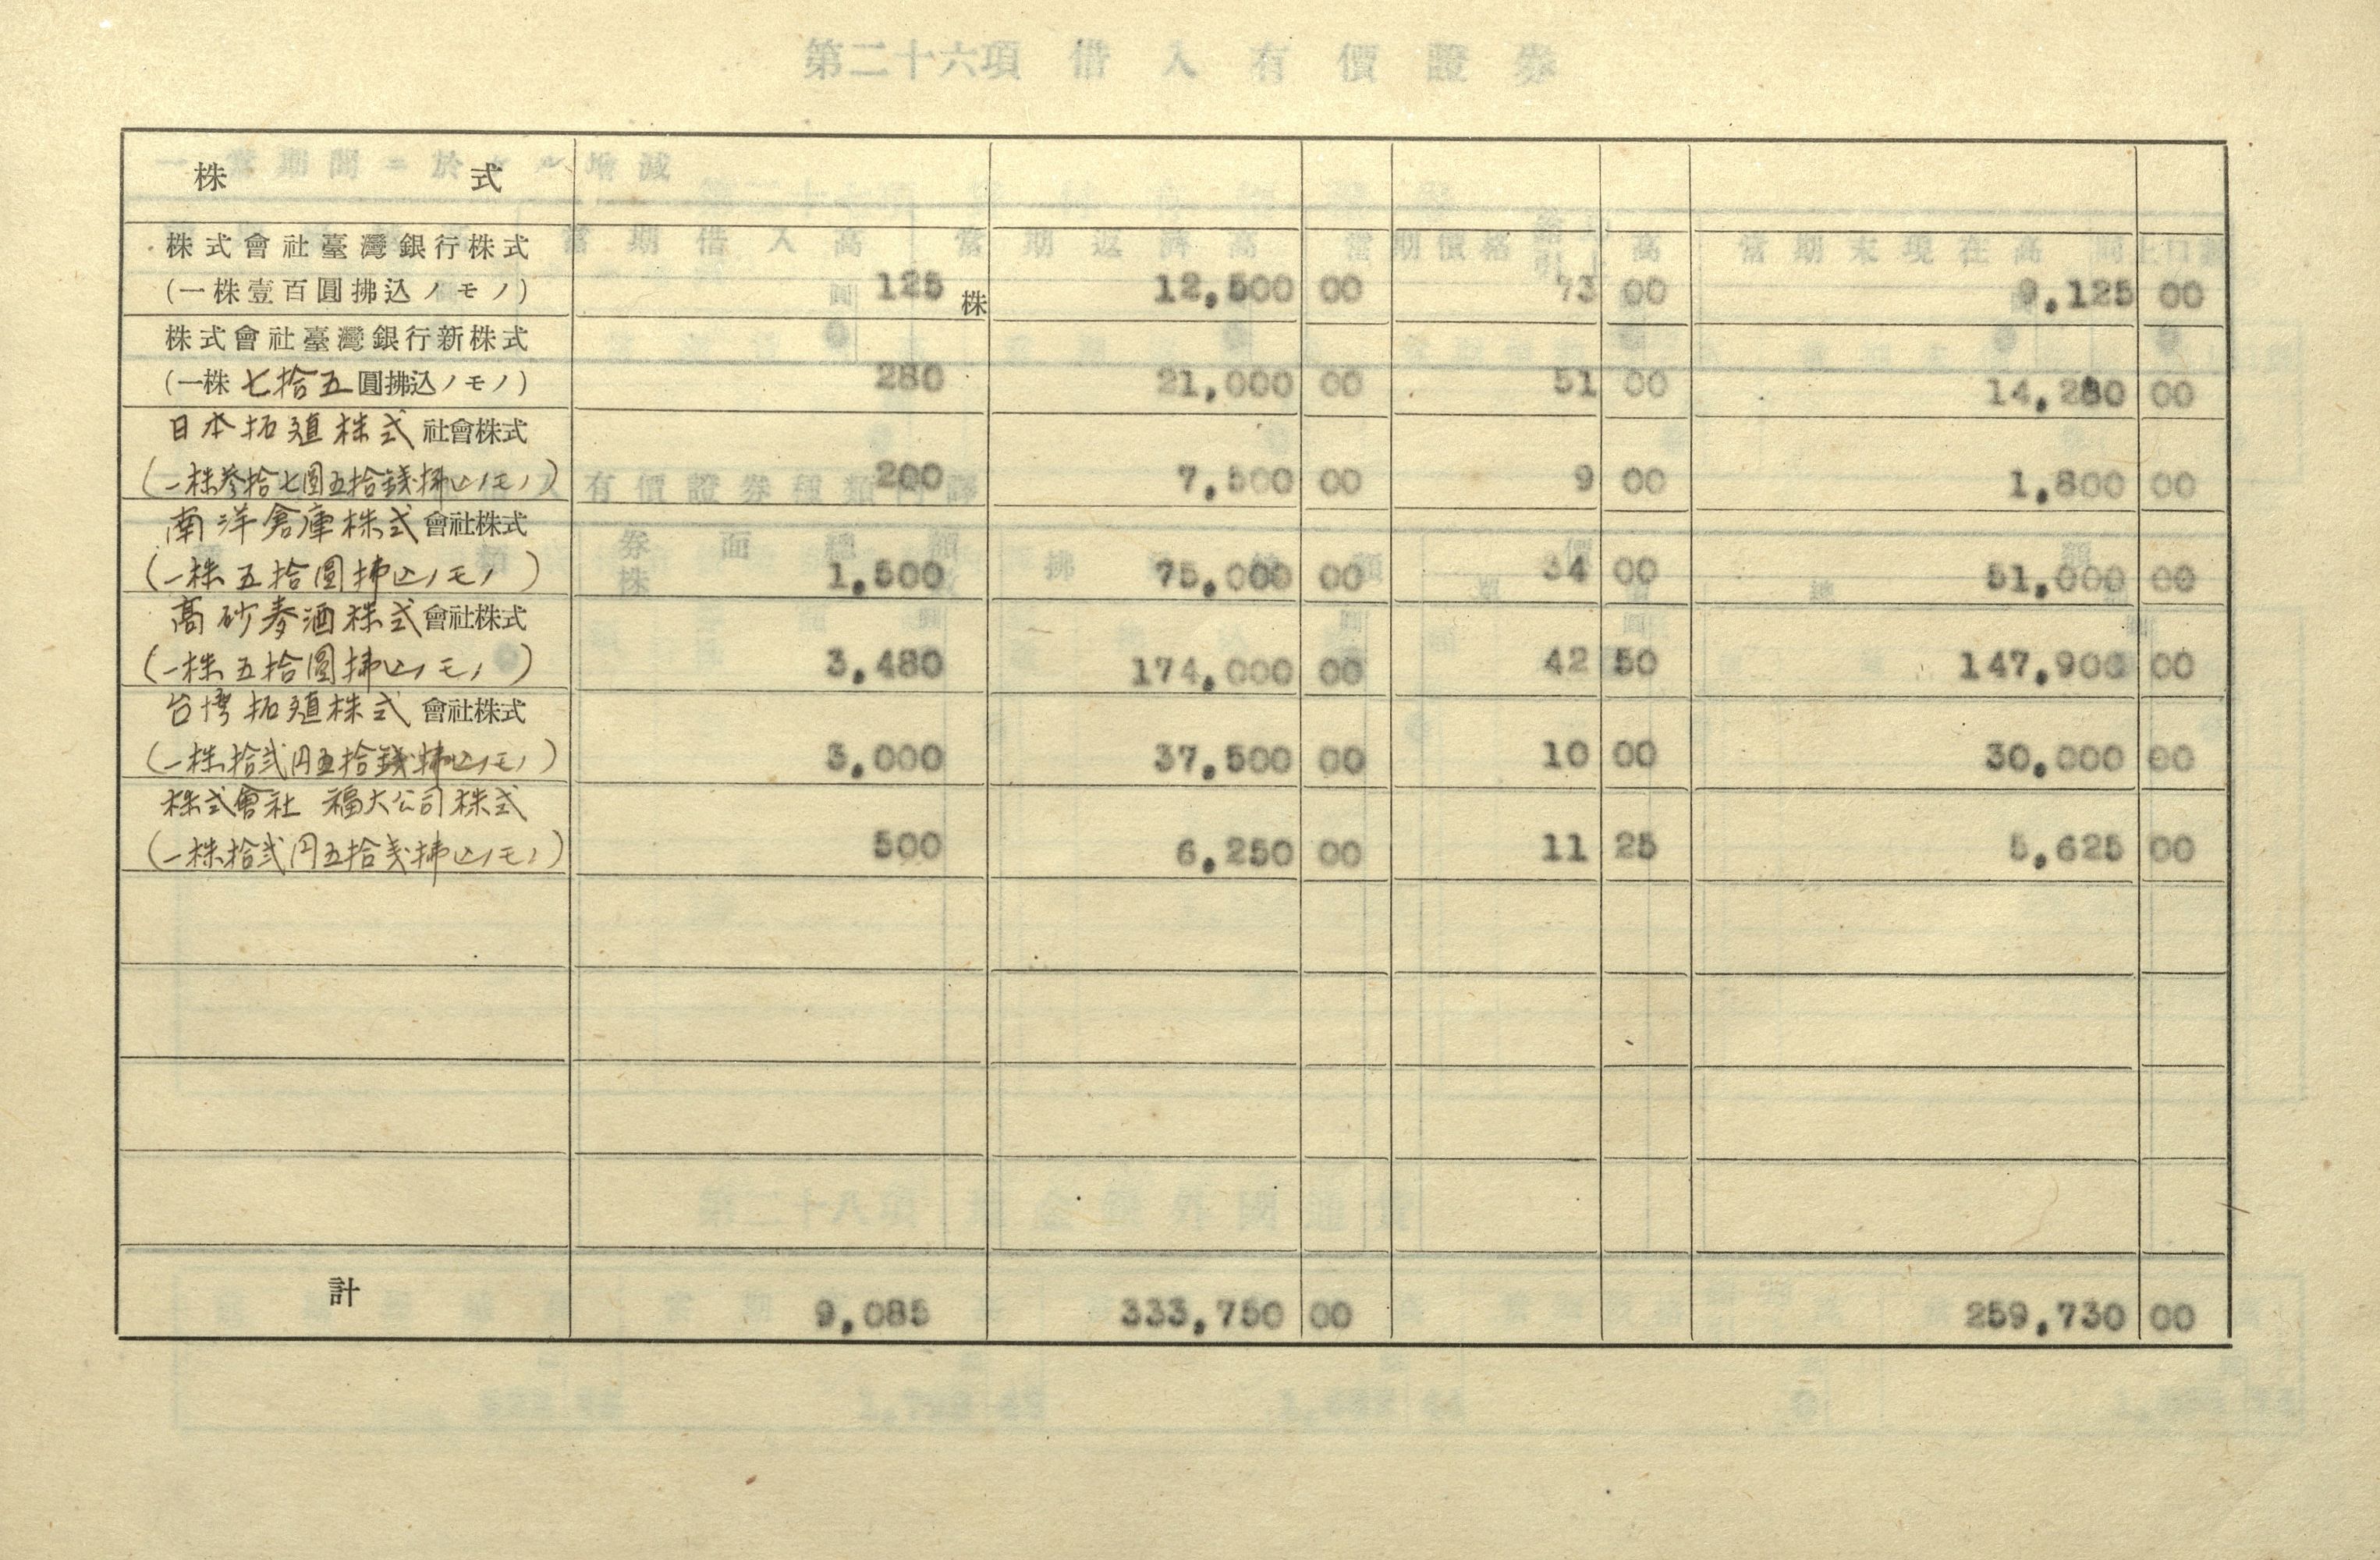 株式
株式會社臺灣銀行株式
(一株壹百圓拂込ノモノ) 125 株 12,500 00 73 00 9,125 00
株式會社臺灣銀行新株式
(一株七拾五圓拂込ノモノ) 280 21,000 00 51 00 14,280 00
日本拓殖株式社會株式
(一株参拾七圓五拾錢拂込ノモノ) 200 7,500 00 9 00 1,800 00
南洋倉庫株式會社株式
(一株五拾圓拂込ノモノ) 1,500 75,000 00 34 00 51,000 00
高砂麥酒株式會社株式
(一株五拾圓拂込ノモノ) 3,480 174,000 00 42 50 147,900 00
台湾拓殖株式會社株式
(一株拾弍円五拾錢拂込ノモノ) 3,000 37,500 00 10 00 30,000 00
株式會社 福大公司株式
(一株拾弍円五拾戋拂込ノモノ) 500 6,250 00 11 25 5,625 00
計 9,085 333,750 00 259,730 00